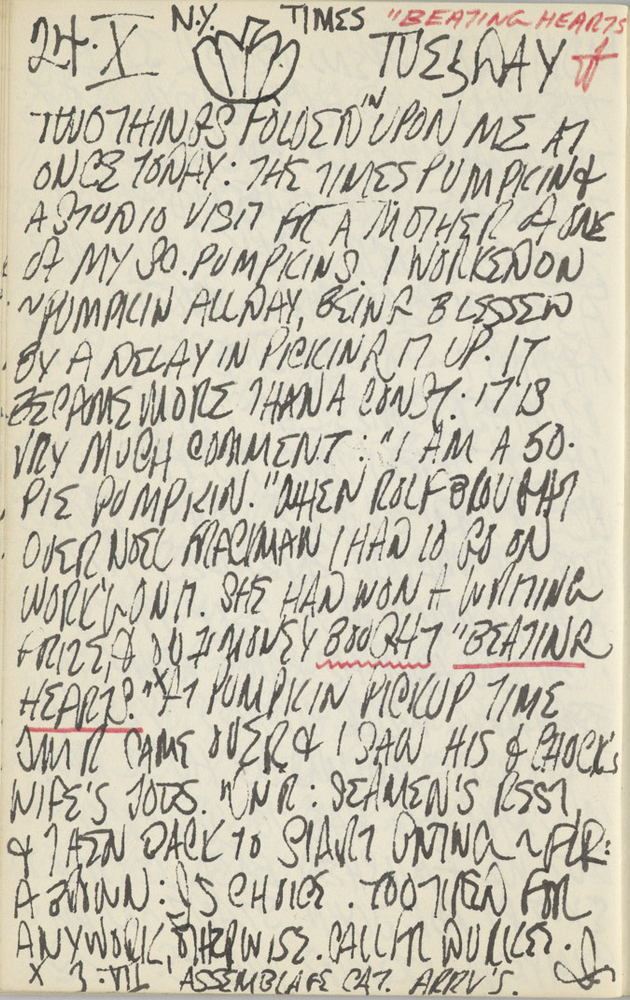 N.Y. TIMES "BEATING HEARTS
24·X TUESDAY
TWO THINGS FOLDED IN UPON ME AT
ONCE TODAY: THE TIMES PUMPKIN &
A STUDIO VISIT AT A MOTHER OF ONE
OF MY SO. PUMPKINS. I WORKED ON
~ PUMPKIN ALL DAY, BEING BLESSED
BY A DELAY IN PICKING IT UP. IT
BECAME MORE THAN A CONST. · IT IS
VRY MUCH COMMENT: "I AM A SO·
PIE PUMPKIN." WHEN ROLF BROUGHT
OVER NOEL FRACKMAN I HAD TO GO ON
WORK'G ON IT. SHE HAD WON A WRITING
PRIZE, & MONEY BOUGHT "BEATING
HEARTS."X AT PUMPKIN PICKUP TIME
JIM R CAME OVER & I SAW HIS & CHUCK'S
WIFE'S JOBS. DNR: SEAMEN'S REST,
& THEN BACK TO START ~
A : J'S CHOICE. TOO TIRED FOR
ANY WORK, OTHERWISE. CALL
X 3·VII ASSEMBLAGE CAT. ARRV'S.